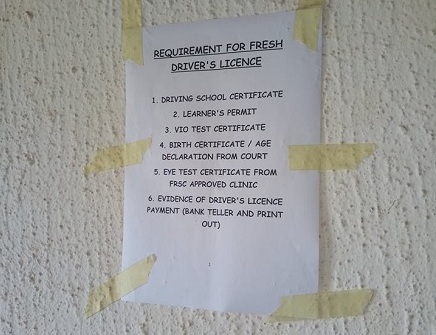 REQUIREMENT FOR FRESH
DRIVER'S LICENCE
1. DRIVING SCHOOL CERTIFICATE
2. LEARNER'S PERMIT
3. VIO TEST CERTIFICATE
4. BIRTH CERTIFICATE / AGE
DECLARATION FROM COURT
5. EYE TEST CERTIFICATE FROM
FRSC APPROVED CLINIC
6. EVIDENCE OF DRIVER'S LICENCE
PAYMENT (BANK TELLER AND PRINT
OUT)